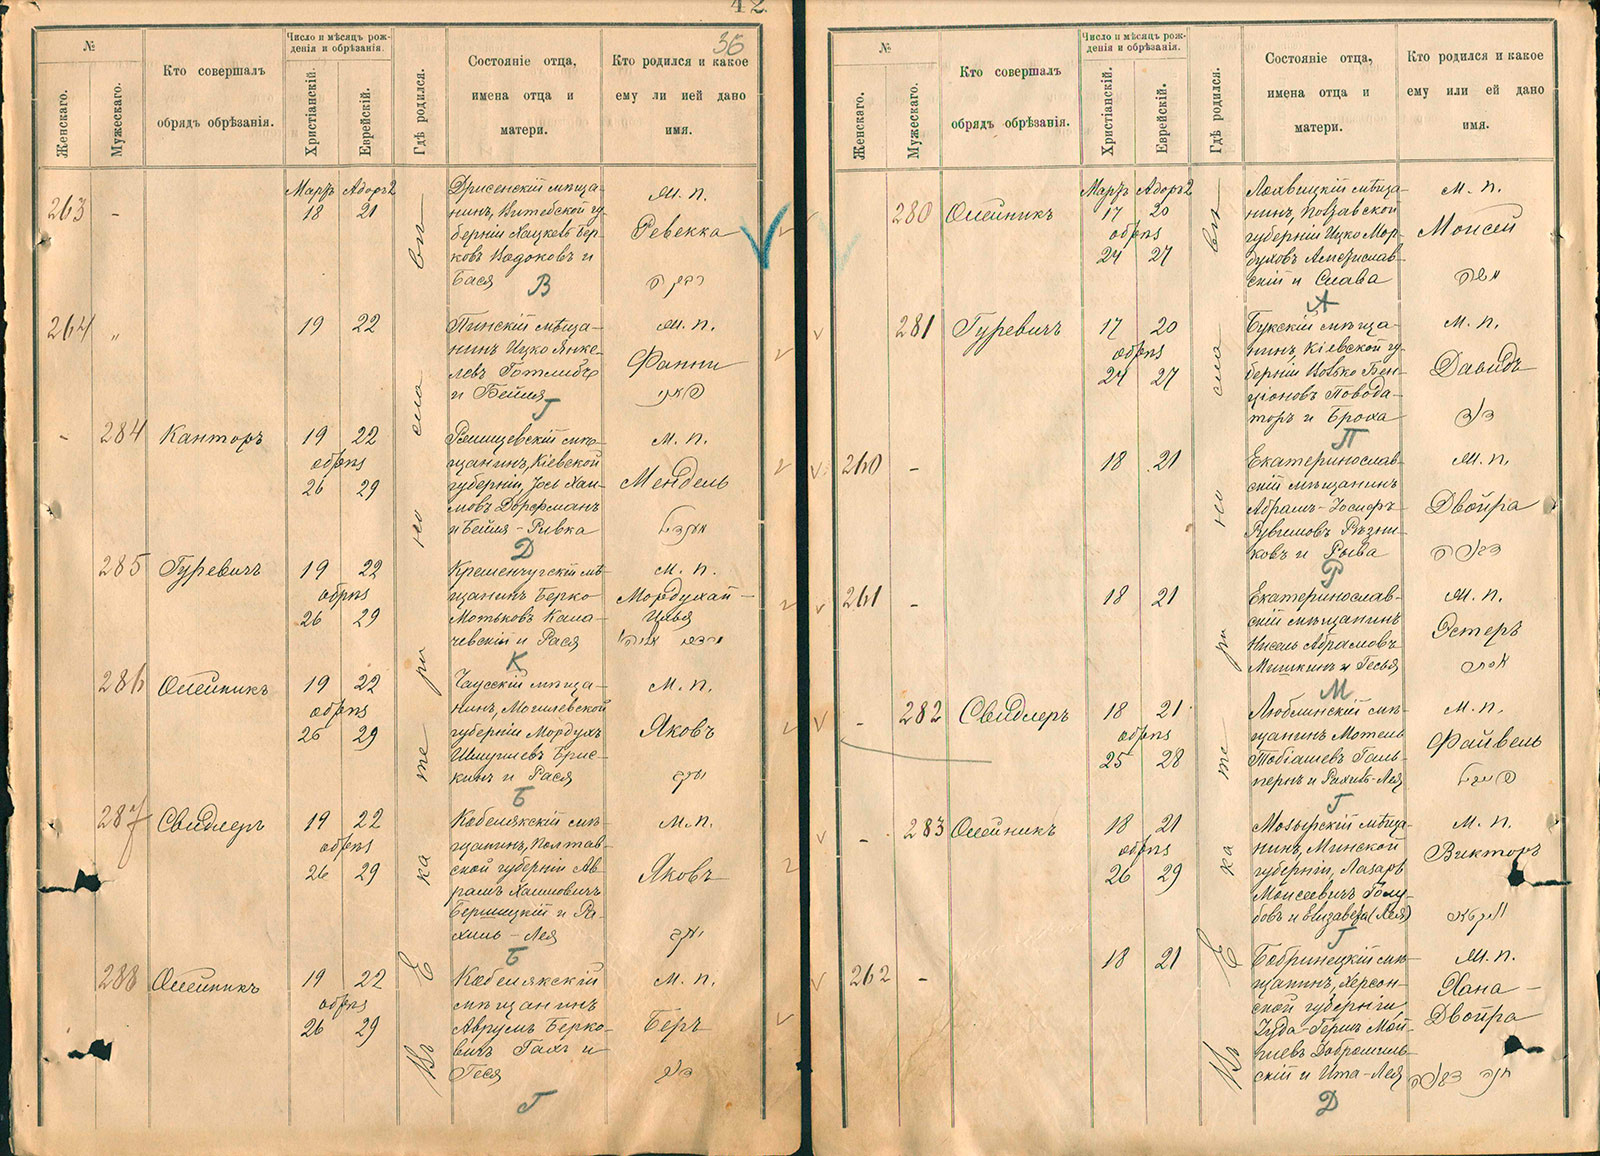 42
36
№
Женскаго.
Мужескаго.
Кто совершалъ
обрядъ обрѣзанія.
Число и мѣсяцъ рож-
денія и обрѣзанія.
Христіанскій.
Еврейскій.
Гдѣ родился.
Состояніе отца,
имена отца и
матери.
Кто родился и какое
ему ли ией дано
имя.
Въ Екатеринославѣ
Мартъ Адоръ 2
263 - 18 21
Дрисенскій мѣща-
нинъ, Витебской гу-
берніи Хацкель Бер-
ковъ Водоковъ и
Бася
м. п.
Ревекка
В
264 „ 19 22
Пинскій мѣща-
нинъ Ицко Янке-
левъ Готлибъ
и Бейля
м. п.
Фанни
Г
- 284 Канторъ 19 22
обрѣз
26 29
мѣ-
щанинъ, Кіевской
губерніи, Іось Хаи-
мовъ Дорфманъ
и Бейля-Ривка
м. п.
Мендель
Д
285 Гуревичъ 19 22
обрѣз
26 29
Кременчугскій мѣ-
щанинъ Берко
Мотьковъ Кала-
чевскій и Рася
м. п.
Мордухай-
Илья
К
286 Олейникъ 19 22
обрѣз
26 29
Чаусскій мѣща-
нинъ, Могилевской
губерніи Мордухъ
Шмуилевъ Брис-
кинъ и Рася
м. п.
Яковъ
Б
287 Свидлеръ 19 22
обрѣз
26 29
Кобелякскій мѣ-
щанинъ, Полтав-
ской губерніи Ав-
рамъ Хаимовичъ
Бершицкій и Ра-
хиль-Лея
м. п.
Яковъ
Б
288 Олейникъ 19 22
обрѣз
26 29
Кобелякскій
мѣщанинъ
Аврумъ Берко-
вичъ Гахъ и
Геся
м. п.
Беръ
Г
№
Женскаго.
Мужескаго.
Кто совершалъ
обрядъ обрѣзанія.
Число и мѣсяцъ рож-
денія и обрѣзанія.
Христіанскій.
Еврейскій.
Гдѣ родился.
Состояніе отца,
имена отца и
матери.
Кто родился и какое
ему или ей дано
имя.
Въ Екатеринославѣ
Мартъ Адоръ 2
280 Олейникъ 17 20
обрѣз
24 27
Лохвицкій мѣща-
нинъ, Полтавской
губерніи Ицко Мор-
духовъ Амстиславъ-
скій и Слава
м. п.
Моисей
משה
А
281 Гуревичъ 17 20
обрѣз
24 27
Букскій мѣща-
нинъ, Кіевской гу-
берніи Волько Бен-
ціоновъ Повода-
торъ и Броха
м. п.
Давидъ
דוד
П
260 - 18 21
Екатеринослав-
скій мѣщанинъ
Абрамъ-Іосифъ
Рувимовъ Рѣзни-
ковъ и Рыва
м. п.
Двойра
Р
261 - 18 21
Екатеринослав-
скій мѣщанинъ
Нисель Абрамовъ
Мишкинъ и Гесья
м. п.
Эстеръ
אסתר
М
- 282 Свидлеръ 18 21
обрѣз
25 28
Люблинскій мѣ-
щанинъ Мотель
Тобіашевъ Галь-
пернъ и Рахиль-Лея
м. п.
Файвель
Г
- 283 Олейникъ 18 21
обрѣз
26 29
Мозырскій мѣща-
нинъ, Минской
губерніи, Лазарь
Моисеевичъ Голу-
бовъ и Елизавета (Лея)
м. п.
Викторъ
Г
262 - 18 21
Бобринецкій мѣ-
щанинъ, Херсон-
ской губерніи
Іуда-Гершъ Мой-
шевъ Добромиль-
скій и Ита-Лея
м. п.
Хана-
Двойра
Д